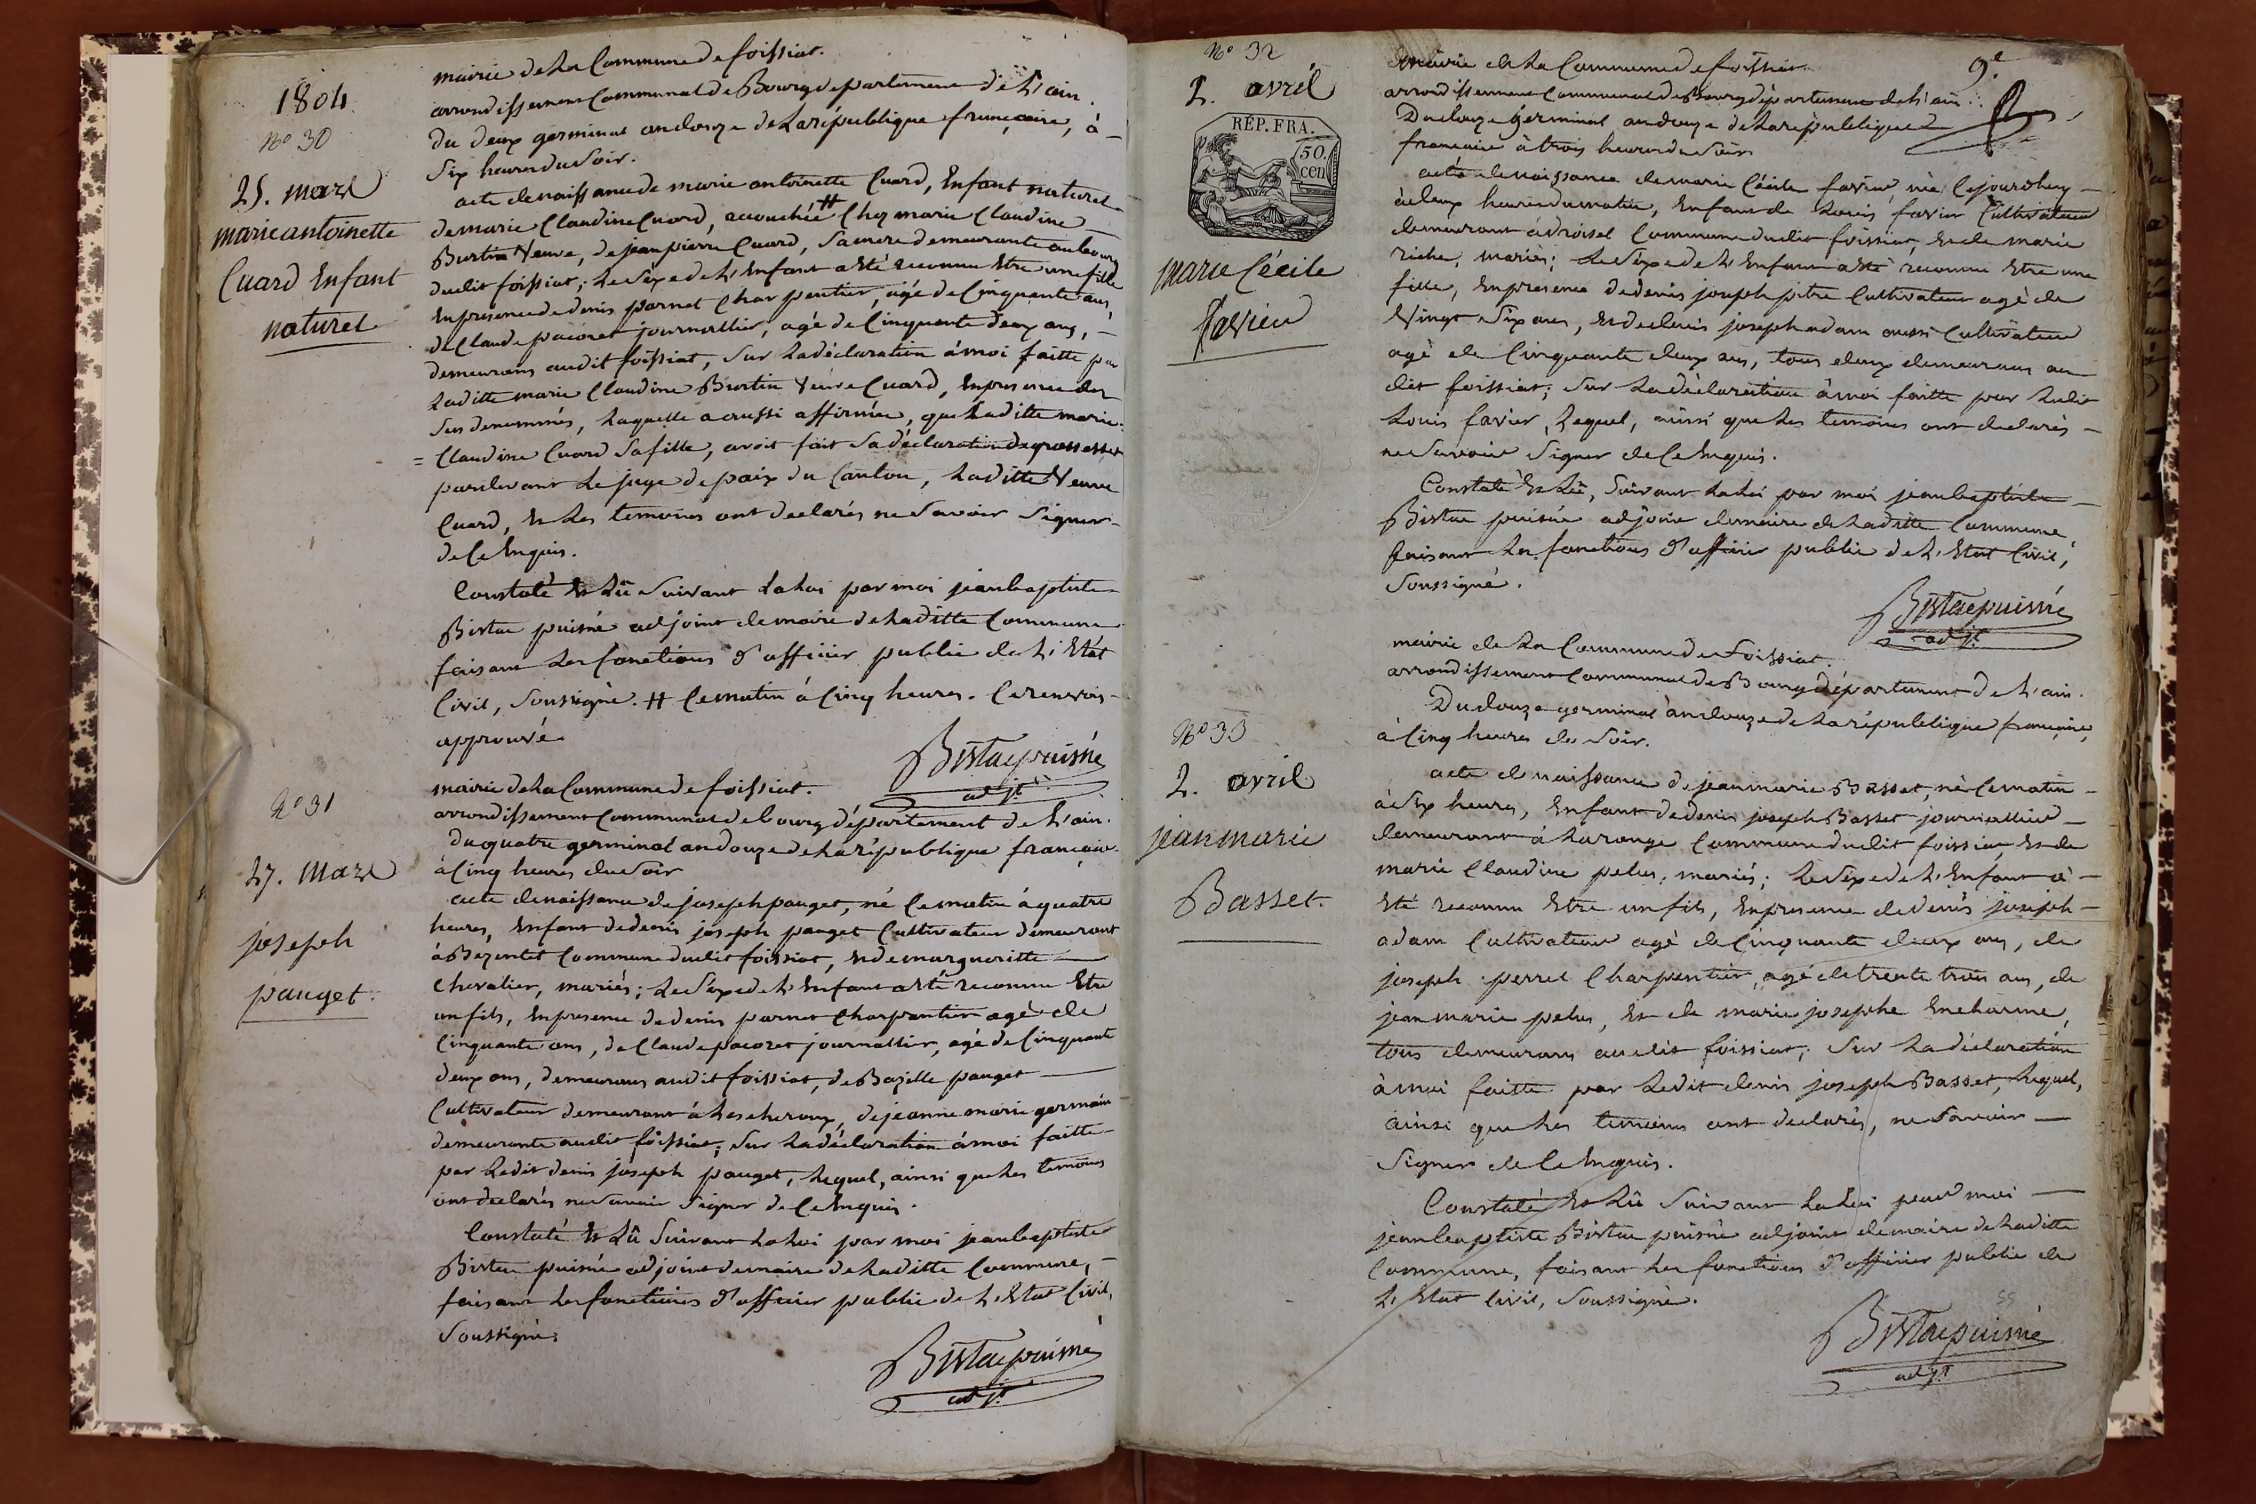 1804
N° 30
25. mars
marie antoinette
Cuard Enfant
naturel
mairie de la Commune de foissiat.
arrondissement Communal de Bourg departement de l'ain.
du deux germinal an douze de la république française, à
Six heures du Soir.
acte de naissance de marie antoinette Cuard, Enfant naturel
de marie Claudine Cuard, accouchée # Chez marie Claudine
Burtin Veuve, de jean pierre Cuard, sa mere demeurante au bourg
dudit foissiat; Le Sexe de l'Enfant a Eté reconnu Etre une fille
En presence de denis parnet Charpentier, agé de Cinquante ans,
de Claude pacoret journallier, agé de Cinquante deux ans,
demeurans audit foissiat, Sur La déclaration à moi faitte par
Laditte marie Claudine Burtin Veuve Cuard, En presence des
Sus denommés, Laquelle a aussi affirmée, que Laditte marie
= Claudine Cuard Sa fille, avoit fait Sa déclaration de grossesse
pardevant Le juge de paix du Canton, Laditte Veuve
Cuard, Et Les temoins ont declarés ne Savoir Signer
de Ce Enquis.
Constaté Et Lû Suivant La Loi par moi jean baptiste
Bistac puisné adjoint de maire de Laditte Commune
faisant Les fonctions d'officier public de L'Etat
Civil, Soussigné. # Ce matin à Cinq heures. Ce renvois
approuvé
Bistac puisné
adjt
N° 31
27. mars
joseph
pauget.
mairie de La Commune de foissiat.
arrondissement Communal de bourg département de L'ain.
Du quatre germinal an douze de La république française
à Cinq heures du Soir
acte de naissance de joseph pauget, né Ce matin à quatre
heures, Enfant de denis joseph pauget Cultivateur demeurant
à Bezentet Commune dudit foissiat, Et de margueritte
Chevalier, mariés; Le Sexe de L'Enfant a Eté reconnu Etre
un fils, En presence de denis parnet Charpentier agé de
Cinquante ans, de Claude pacoret journallier, agé de Cinquante
deux ans, demeurans audit foissiat, de Bazille pauget
Cultivateur demeurant à Lescheroux, de jeanne marie germain
demeurante audit foissiat; Sur La déclaration à moi faitte
par Ledit denis joseph pauget, Lequel, ainsi que Les temoins
ont declarés ne Savoir Signer de Ce Enquis.
Constaté Et Lû Suivant La Loi par moi jean baptiste
Bistac puisné adjoint de maire de Laditte Commune,
faisant Les fonctions d'officier public de L'Etat Civil,
Soussigné
Bistac puisné
adjt
N° 32
2. avril
REP. FRA.
50
cen
marie Cécile
favier
9.e
mairie de La Commune de foissiat
arrondissement Communal de Bourg département de L'ain.
Du douze Germinal an douze de La république
française à trois heures du Soir
acte de naissance de marie Cécile favier, née Cejourd'huy
à deux heures du matin, Enfant de Louis favier Cultivateur
demeurant à droisel Commune dudit foissiat, Et de marie
riche, mariés; Le Sexe de L'Enfant a Eté reconnu Etre une
fille, En presence de denis joseph pitre Cultivateur agé de
Vingt Six ans, Et de denis joseph adam aussi Cultivateur
agé de Cinquante deux ans, tous deux demeurans au
dit foissiat; Sur La déclaration à moi faitte par Ledit
Louis favier, Lequel, ainsi que Les temoins ont declarés
ne Savoir Signer de Ce Enquis.
Constaté Et Lû, Suivant La Loi par moi jean baptiste
Bistac puisné adjoint de maire de Laditte Commune
faisant Les fonctions d'officier public de L'Etat Civil,
Soussigné.
Bistac puisné
adjt
N° 33
2. avril
jean marie
Basset.
mairie de La Commune de Foissiat.
arrondissement Communal de Bourg département de L'ain.
Du douze germinal an douze de La république française,
à Cinq heures du Soir.
acte de naissance de jean marie Basset, né Ce matin
à Six heures, Enfant de denis joseph Basset journallier
demeurant à La range Commune dudit foissiat Et de
marie Claudine pelus, mariés; Le Sexe de L'Enfant a
Eté reconnu Etre un fils, En presence de denis joseph
adam Cultivateur agé de Cinquante deux ans, de
joseph perret Charpentier, agé de trente trois ans, de
jean marie pelus, Et de marie josephe Encharme,
tous demeurans audit foissiat; Sur La déclaration
à moi faitte par Ledit denis joseph Basset, Lequel,
ainsi que Les temoins ont declarés, ne Savoir
Signer de Ce Enquis.
Constaté Et Lû Suivant La Loi par moi
jean baptiste Bistac puisné adjoint de maire de Laditte
Commune, faisant Les fonctions d'officier public de
L'Etat Civil, Soussigné.
Bistac puisné
adjt